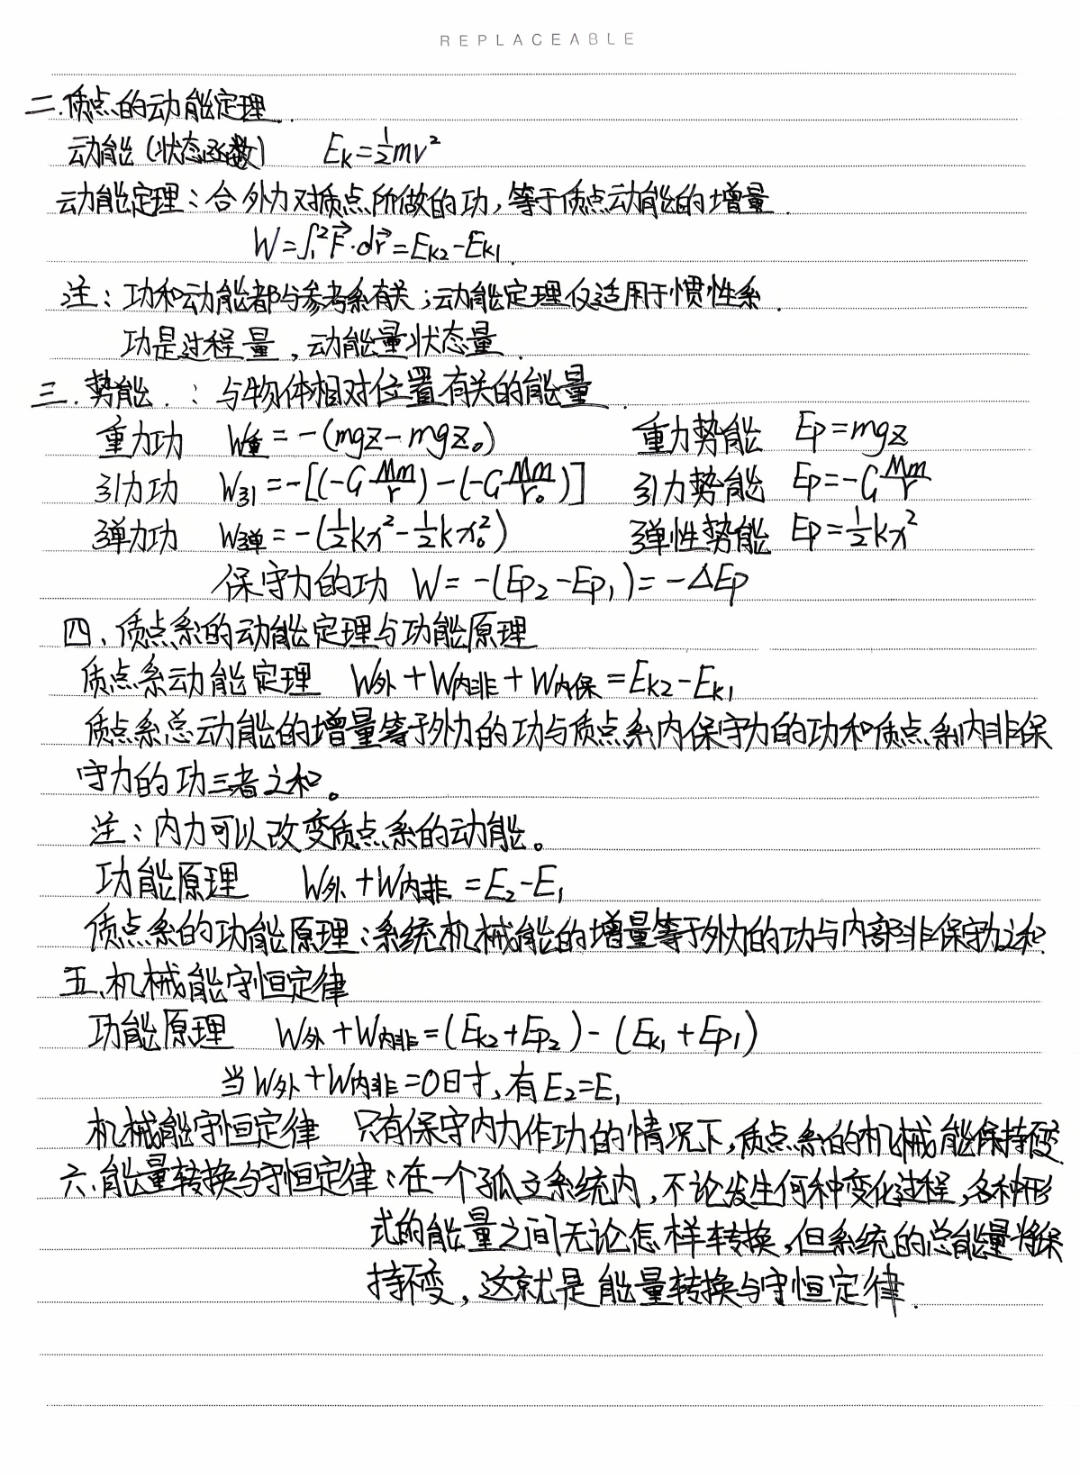 REPLACEABLE
二.质点的动能定理.
动能(状态函数) Eₖ=½mv²
动能定理:合外力对质点所做的功,等于质点动能的增量.
W=∫₁²F⃗·dr⃗=Eₖ₂-Eₖ₁.
注:功和动能都与参考系有关;动能定理仅适用于惯性系.
功是过程量,动能量状态量.
三.势能.:与物体相对位置有关的能量.
重力功 W重=-(mgz-mgz₀) 重力势能 Ep=mgz
引力功 W引=-[(-G Mm/r)-(-G Mm/r₀)] 引力势能 Ep=-G Mm/r
弹力功 W弹=-(½kx²-½kx₀²) 弹性势能 Ep=½kx²
保守力的功 W=-(Ep₂-Ep₁)=-ΔEp
四、质点系的动能定理与功能原理
质点系动能定理 W外+W内非+W内保=Eₖ₂-Eₖ₁
质点系总动能的增量等于外力的功与质点系内保守力的功和质点系内非保
守力的功三者之和。
注:内力可以改变质点系的动能。
功能原理 W外+W内非=E₂-E₁
质点系的功能原理:系统机械能的增量等于外力的功与内部非保守力之和.
五、机械能守恒定律
功能原理 W外+W内非=(Eₖ₂+Ep₂)-(Eₖ₁+Ep₁)
当W外+W内非=0时,有E₂=E₁
机械能守恒定律 只有保守内力作功的情况下,质点系的机械能保持不变
六、能量转换与守恒定律:在一个孤立系统内,不论发生何种变化过程,各种形
式的能量之间无论怎样转换,但系统的总能量将保
持不变,这就是能量转换与守恒定律.